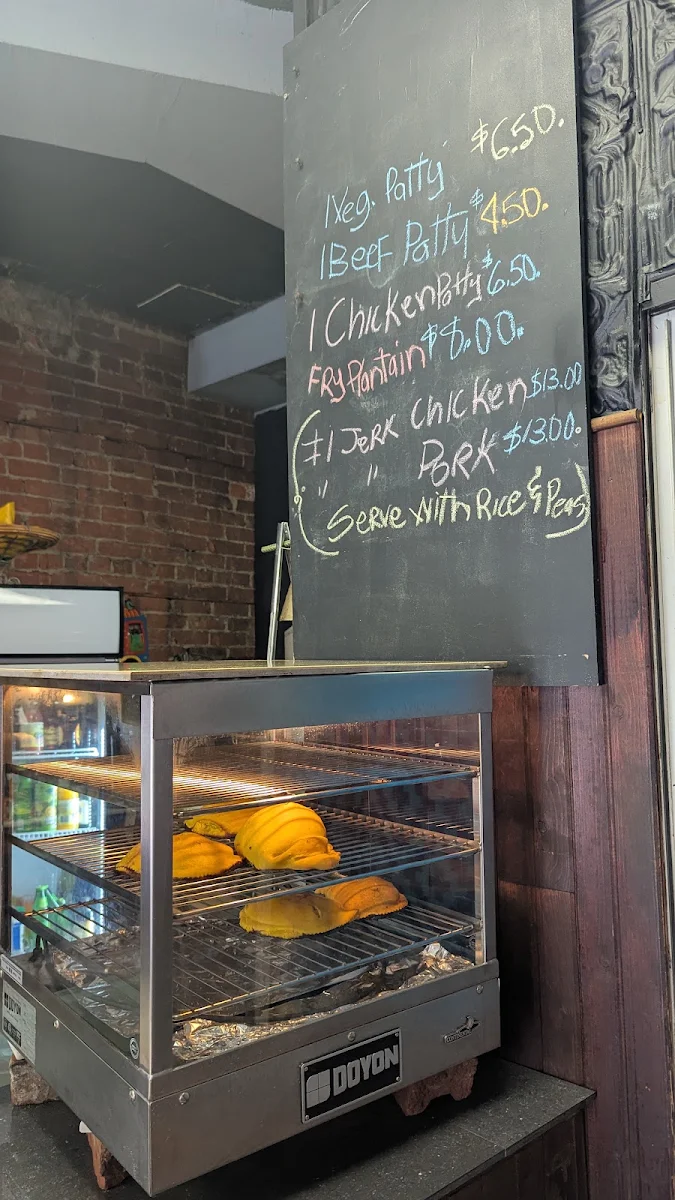 1 Veg. Patty $6.50.
1 BEEF Patty $4.50.
1 Chicken Patty $6.50.
FRY Plantain $8.00.
#1 JERK Chicken $13.00
" " PORK $13.00.
SERVE With Rice & Peas
DOYON